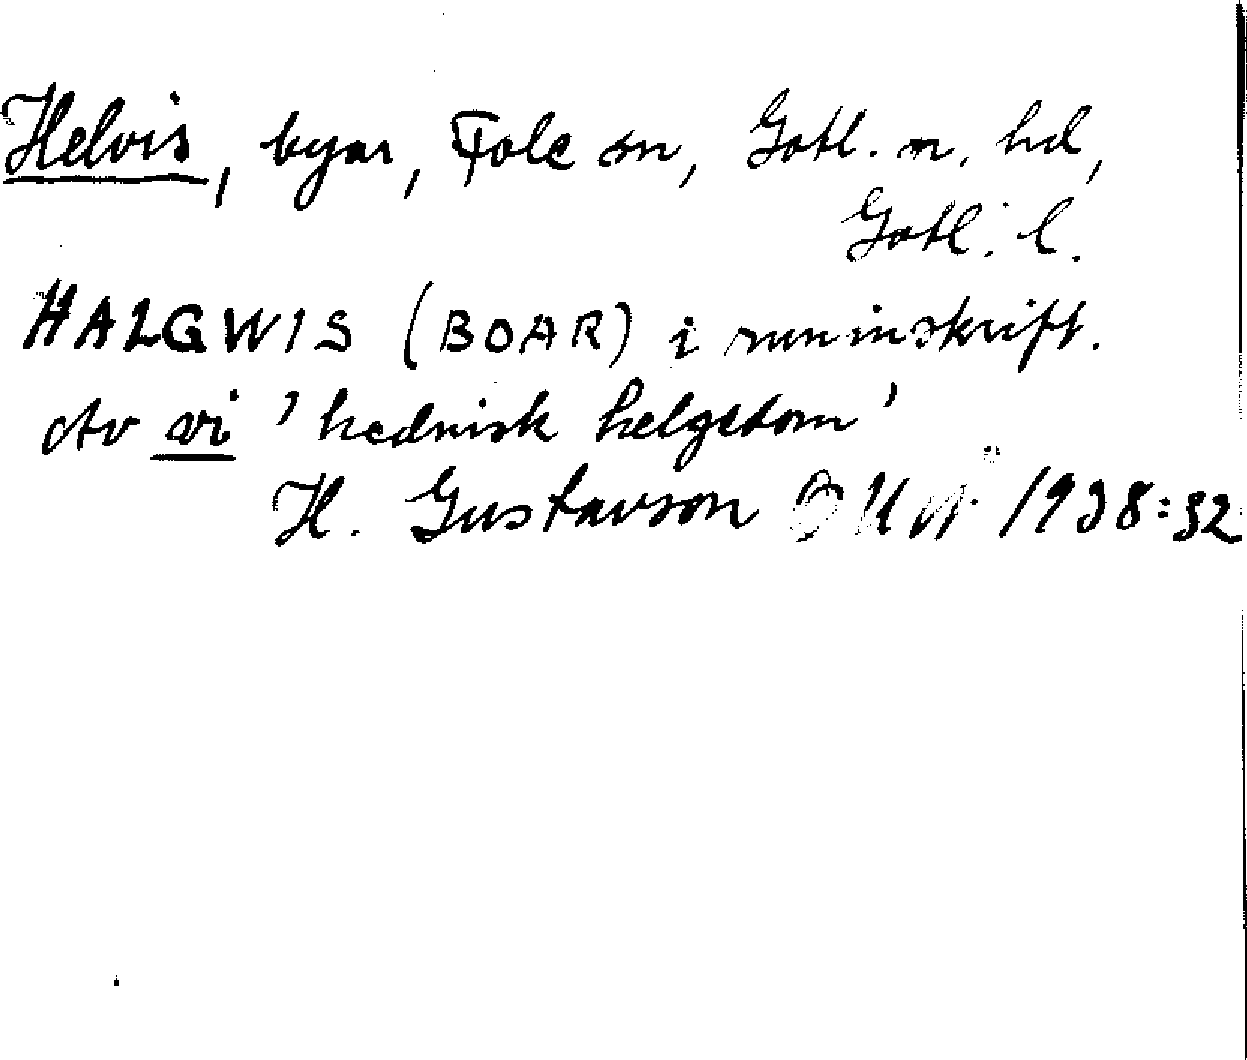 Helvis, byar, Fole sn, Gotl. n. hd,
Gotl. l.
HALGWIS (BOAR) i runinskrift.
Av vi 'hednisk helgedom'
H. Gustavson 1938:32